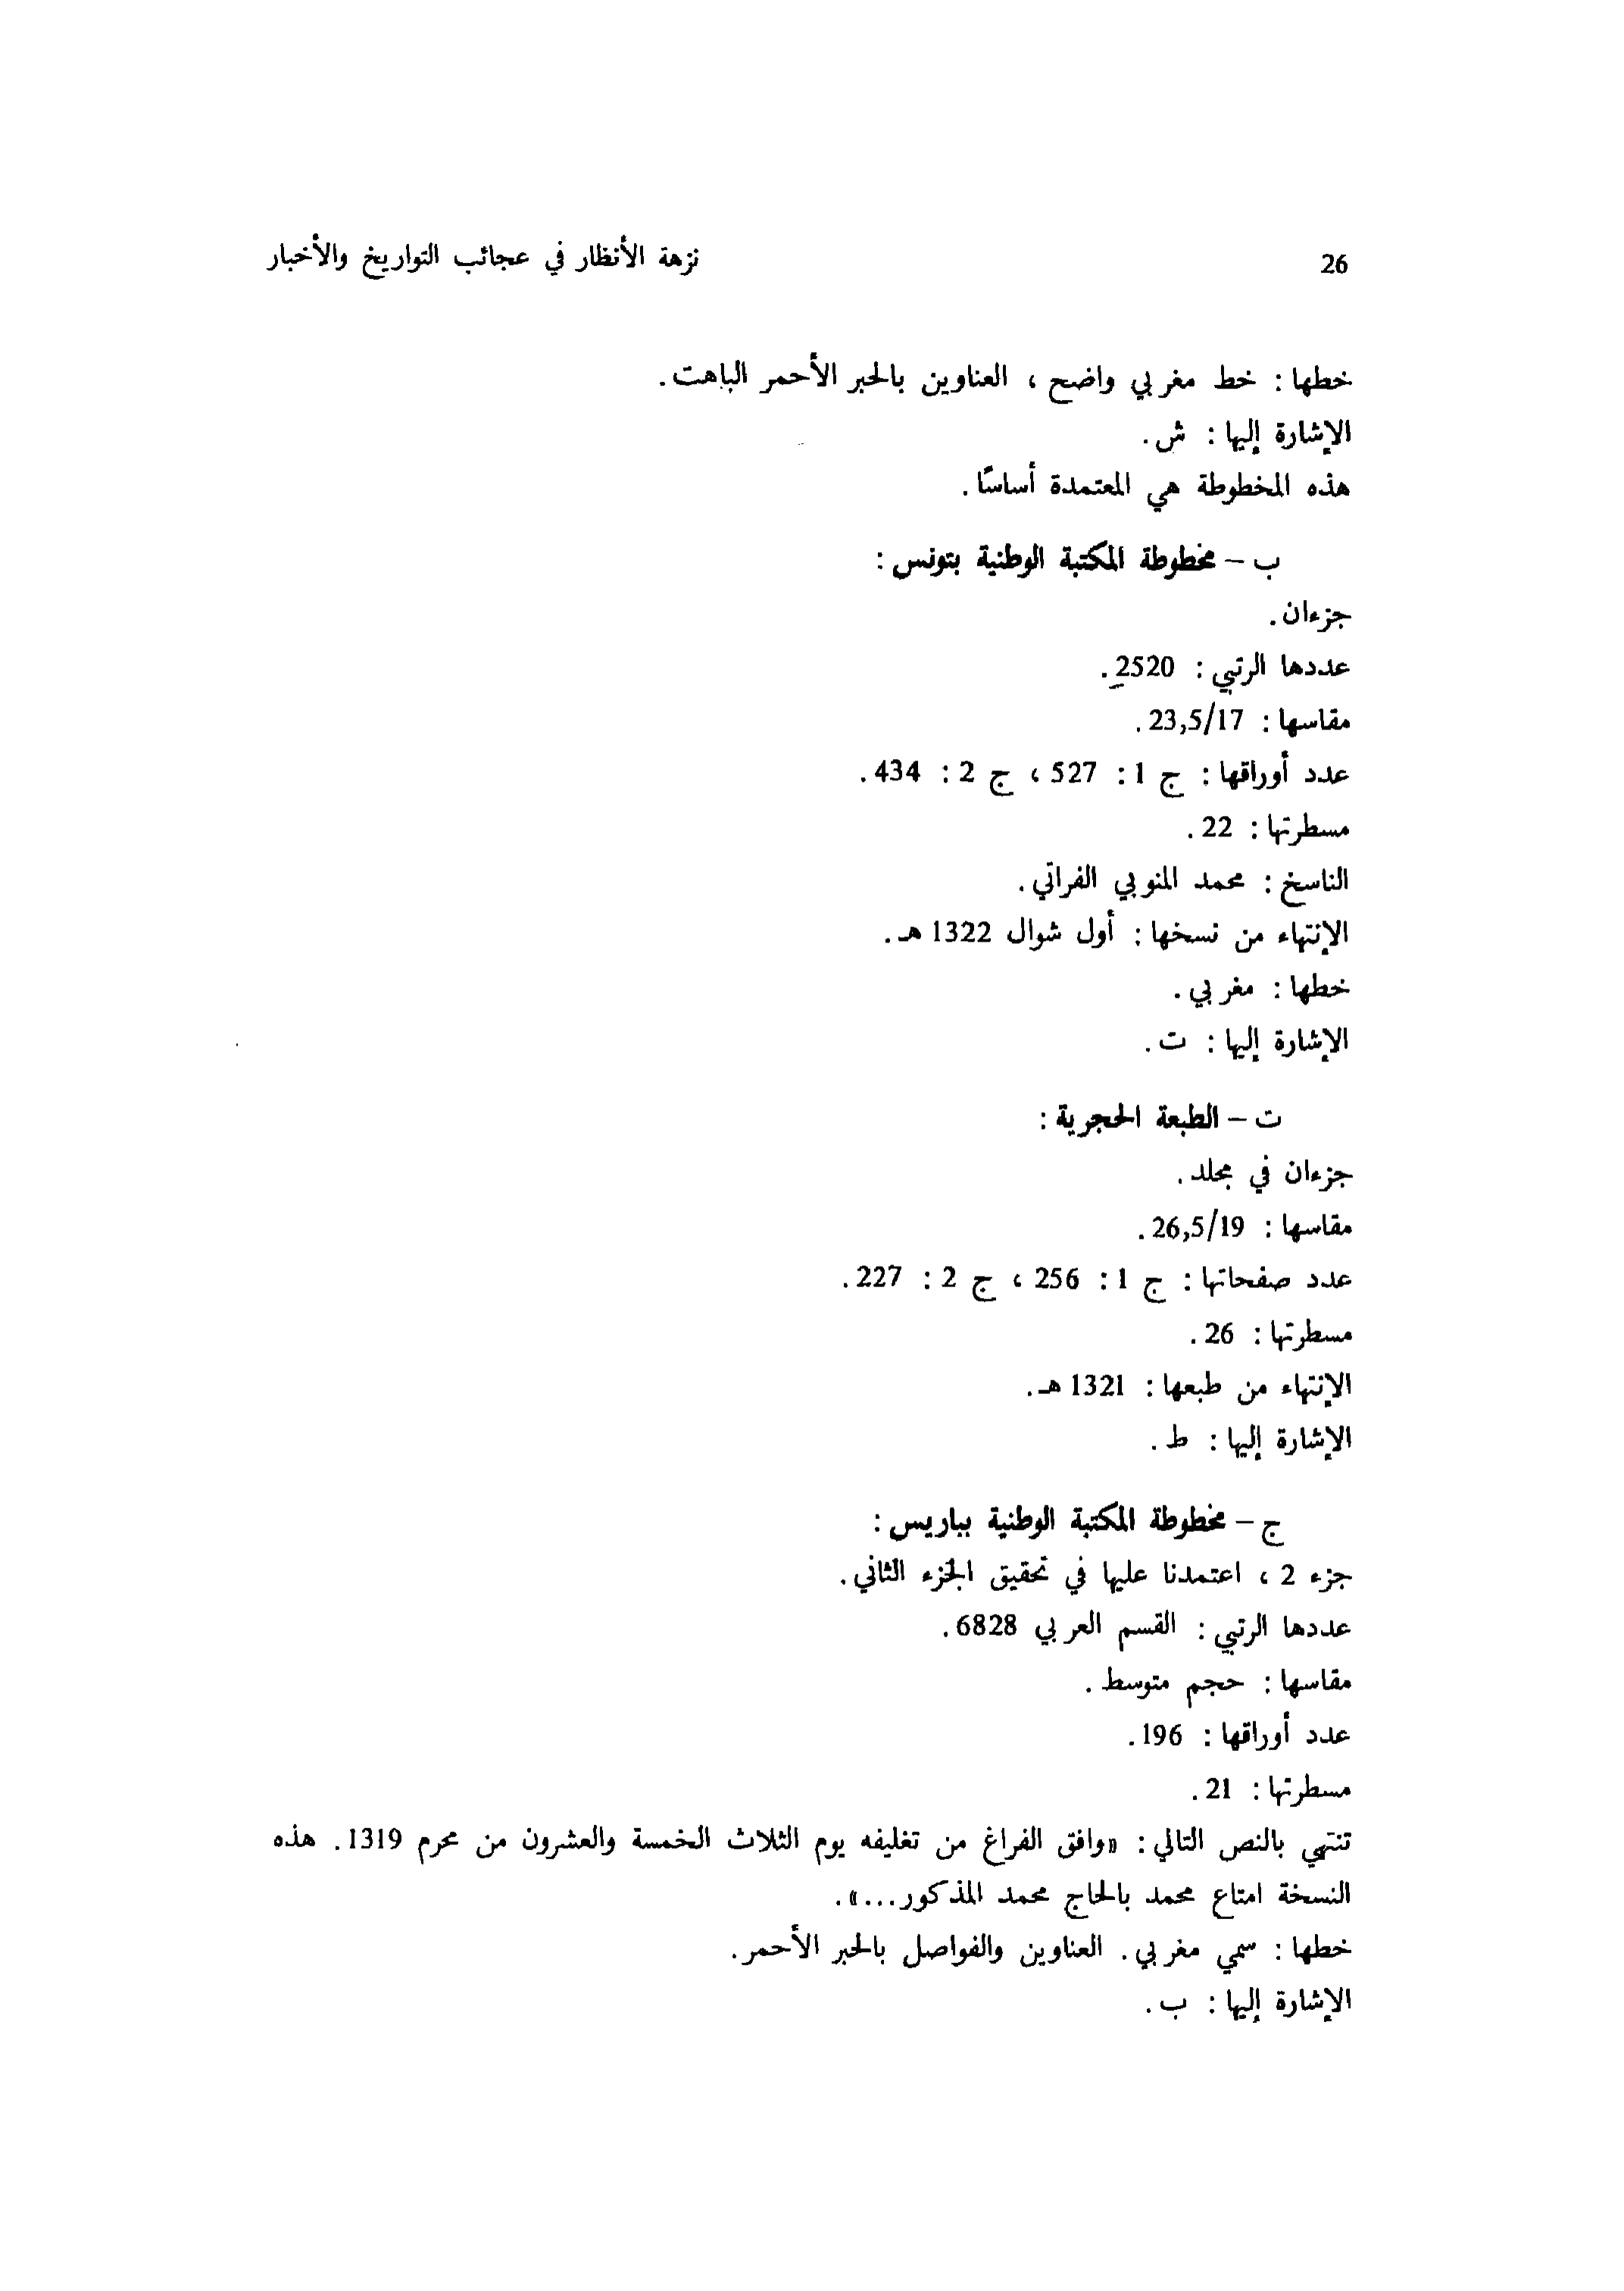 26
نزهة الأنظار في عجائب التواريخ والأخبار
خطها : خط مغربي واضح ، العناوين بالحبر الأحمر الباهت .
الإشارة إليها : ش .
هذه المخطوطة هي المعتمدة أساسًا .
ب – مخطوطة المكتبة الوطنية بتونس :
جزءان .
عددها الرتبي : 2520 .
مقاسها : 23,5/17 .
عدد أوراقها : ج 1 : 527 ، ج 2 : 434 .
مسطرتها : 22 .
الناسخ : محمد المنوبي الفراتي .
الإنتهاء من نسخها : أول شوال 1322 هـ .
خطها : مغربي .
الإشارة إليها : ت .
ت – الطبعة الحجرية :
جزءان في مجلد .
مقاسها : 26,5/19 .
عدد صفحاتها : ج 1 : 256 ، ج 2 : 227 .
مسطرتها : 26 .
الإنتهاء من طبعها : 1321 هـ .
الإشارة إليها : ط .
ج – مخطوطة المكتبة الوطنية بباريس :
جزء 2 ، اعتمدنا عليها في تحقيق الجزء الثاني .
عددها الرتبي : القسم العربي 6828 .
مقاسها : حجم متوسط .
عدد أوراقها : 196 .
مسطرتها : 21 .
تنتهي بالنص التالي : «وافق الفراغ من تغليفه يوم الثلاث الخمسة والعشرون من محرم 1319 . هذه
النسخة امتاع محمد بالحاج محمد المذكور...» .
خطها : سمي مغربي . العناوين والفواصل بالحبر الأحمر .
الإشارة إليها : ب .